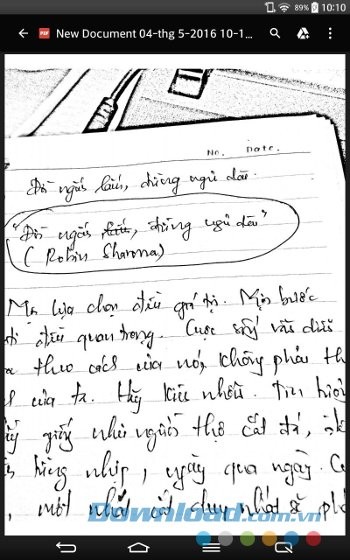 89% 10:10
New Document 04-thg 5-2016 10-1...
No. Date.
Đời ngắn lắm, đừng ngủ dài.
"Đời ngắn, đừng ngủ dài"
(Robin Sharma)
lựa chọn điều giá trị. Một bước
điều quan trọng. Cuộc sống vẫn diễn
theo cách của nó, không phải th
của ta. Hãy kiên nhẫn. Tin
giống như người thợ cắt đá,
hàng nhịp, ngày qua ngày. C
một nhát cắt duy nhất sẽ ph
Download.com.vn